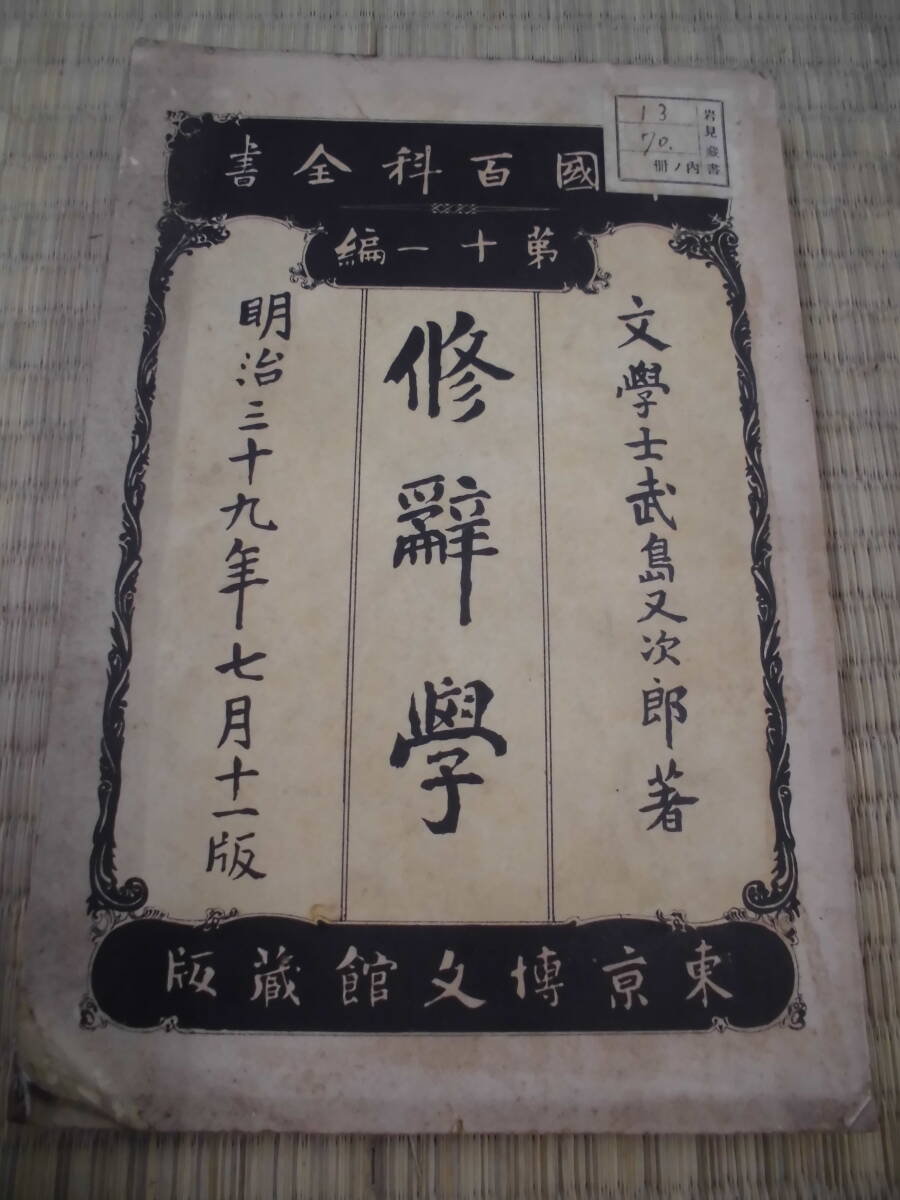 國百科全書
第十一編
文學士武島又次郎著
修辭學
明治三十九年七月十一版
東京博文館蔵版
岩見藏書
13
70.
內ノ冊